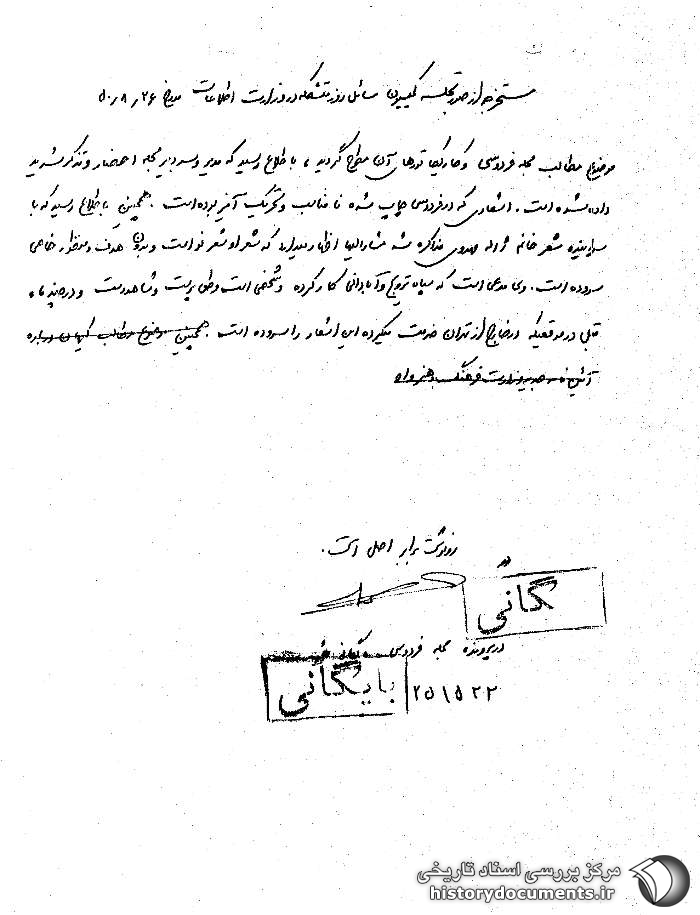 مستخرجه از صورتجلسه کمیسیون مسائل روز متشکله در وزارت اطلاعات مورخ ۵۰/۸/۲۶
موضوع مطالب مجله فردوسی و کاریکاتورهای آن مطرح گردید، باطلاع رسید که مدیر و سردبیر مجله احضار و تذکر شدید
داده شده است. اشعاری که در فردوسی چاپ شده نامناسب و تحریک آمیز بوده است. همچنین باطلاع رسید که با
سراینده شعر خانم ژاله مذاکره شد مشارالیها اظهار میدارد که شعر او شعر نو است و بدون هدف و منظور خاصی
سروده است. وی مدعی است که سپاه ترویج و آبادانی کار کرده و شخصی است وطن پرست و شاهدوست و در چند ماه
قبل در موقعیکه در خارج از تهران خدمت میکرده این اشعار را سروده است. همچنین موضوع مطالب کیهان درباره
آئین فرهنگ و هنر
رونوشت برابر اصل است.
گانی
در پرونده مجله فردوسی
بایگانی
۲۵۱۵۲۲
مرکز بررسی اسناد تاریخی
historydocuments.ir